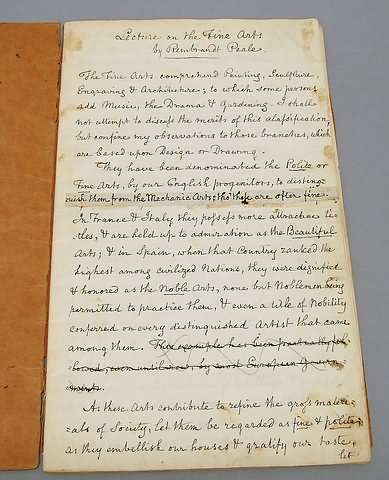 Lecture on the Fine Arts
by Rembrandt Peale.
The Fine Arts comprehend Painting, Sculpture,
Engraving & Architecture; to which some persons
add Music, the Drama & Gardening. I shall
not attempt to discuss the merits of this classification,
but confine my observations to those branches, which
are based upon Design or Drawing.
They have been denominated the Polite or
Fine Arts, by our English progenitors, to disting-
uish them from the Mechanic Arts; tho' these are often fine.
In France & Italy they possess more attractive ti-
tles, & are held up to admiration as the Beautiful
Arts; & in Spain, when that Country ranked the
highest among civilized Nations, they were dignified
& honored as the Noble Arts, none but Noblemen being
permitted to practice them, & even a title of Nobility
conferred on every distinguished Artist that came
among them. This example has been practically fol-
lowed, even until now, by most European Govern-
ments.
As these Arts contribute to refine the gross materi-
als of Society, let them be regarded as fine & polite;
as they embellish our houses & gratify our taste,
let